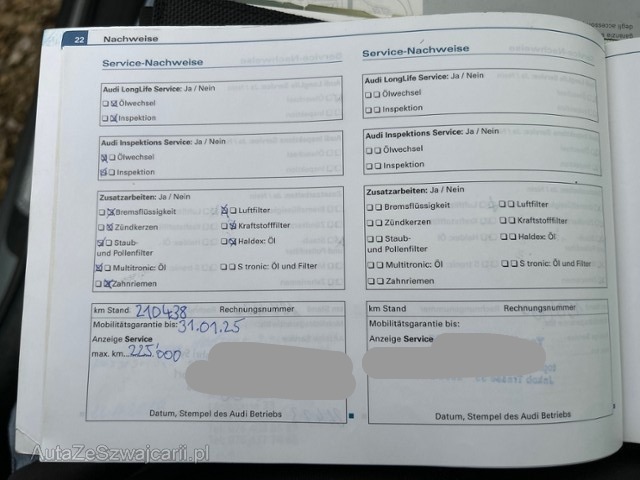 22 Nachweise
Service-Nachweise
Audi LongLife Service: Ja / Nein
Ölwechsel
Inspektion
Audi Inspektions Service: Ja / Nein
Ölwechsel
Inspektion
Zusatzarbeiten: Ja / Nein
Bremsflüssigkeit Luftfilter
Zündkerzen Kraftstofffilter
Staub- Haldex: Öl
und Pollenfilter
Multitronic: Öl S tronic: Öl und Filter
Zahnriemen
km Stand 210438 Rechnungsnummer
Mobilitätsgarantie bis: 31.01.25
Anzeige Service
max. km...225.000
Datum, Stempel des Audi Betriebs
Service-Nachweise
Audi LongLife Service: Ja / Nein
Ölwechsel
Inspektion
Audi Inspektions Service: Ja / Nein
Ölwechsel
Inspektion
Zusatzarbeiten: Ja / Nein
Bremsflüssigkeit Luftfilter
Zündkerzen Kraftstofffilter
Staub- Haldex: Öl
und Pollenfilter
Multitronic: Öl S tronic: Öl und Filter
Zahnriemen
km Stand Rechnungsnummer
Mobilitätsgarantie bis:
Anzeige Service
Datum, Stempel des Audi Betriebs
AutaZeSzwajcarii.pl